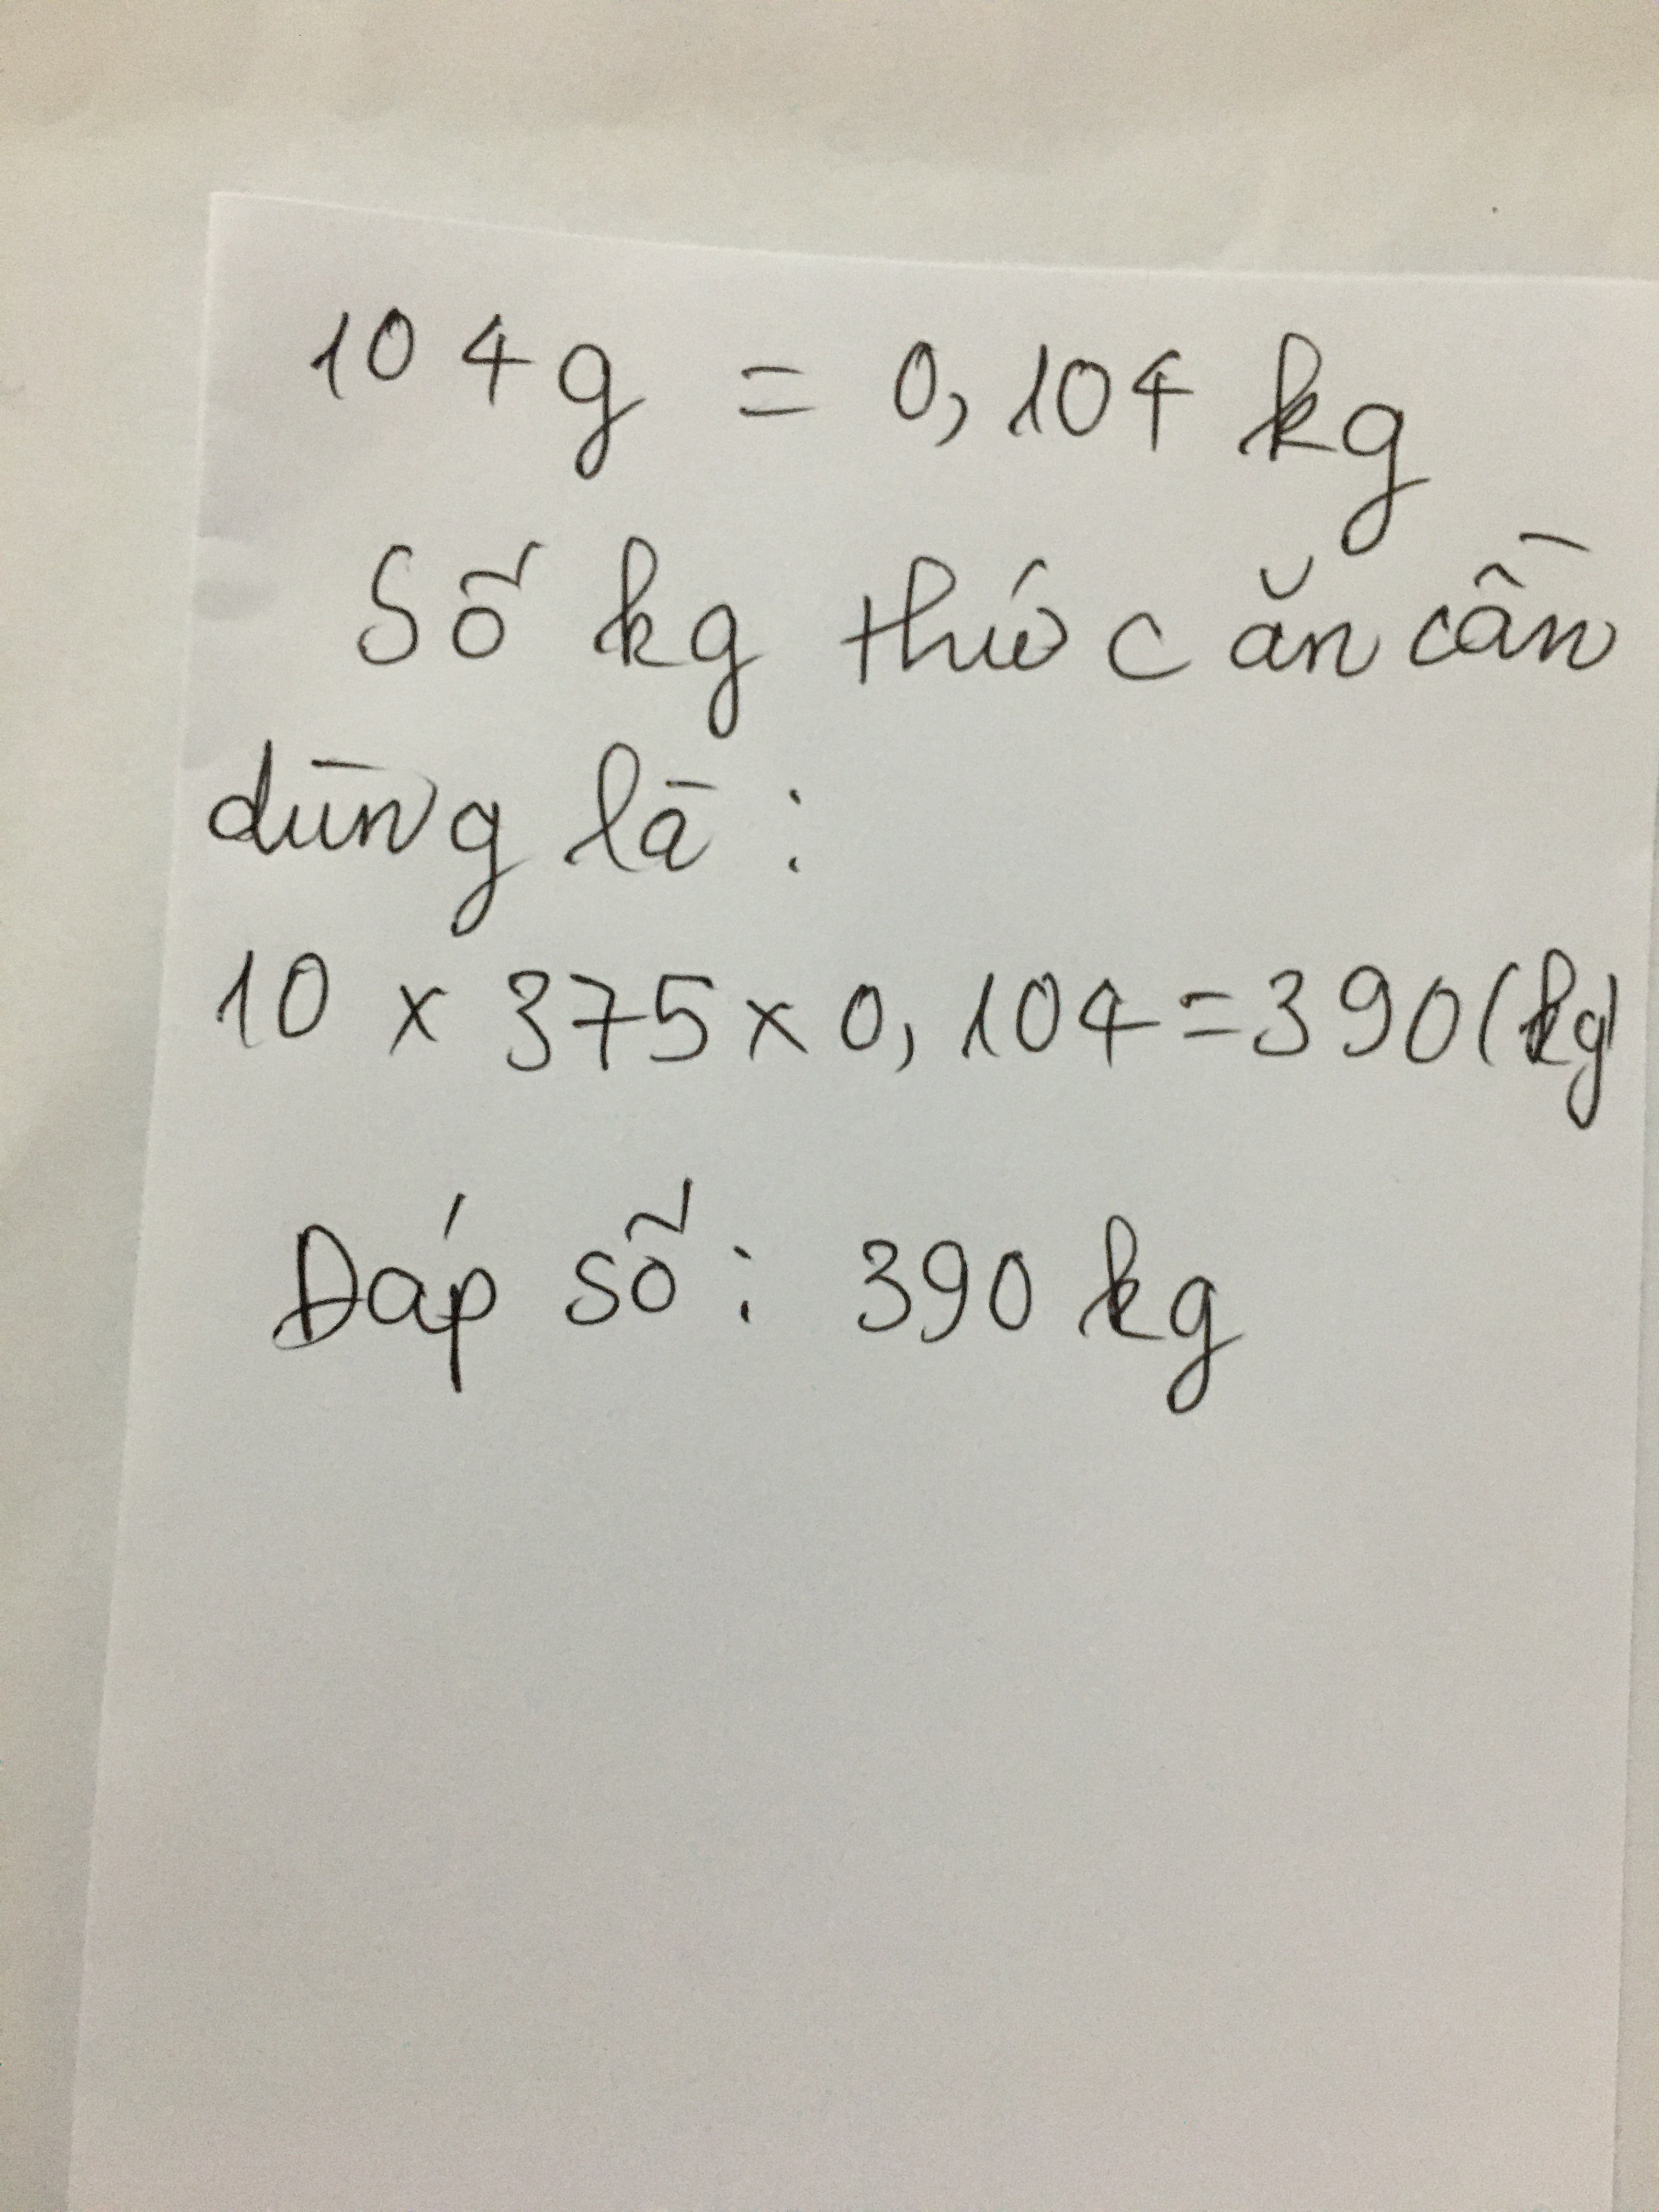 104g = 0,104 kg
Số kg thức ăn cần
dùng là:
10 x 375 x 0,104 = 390 (kg)
Đáp số: 390 kg